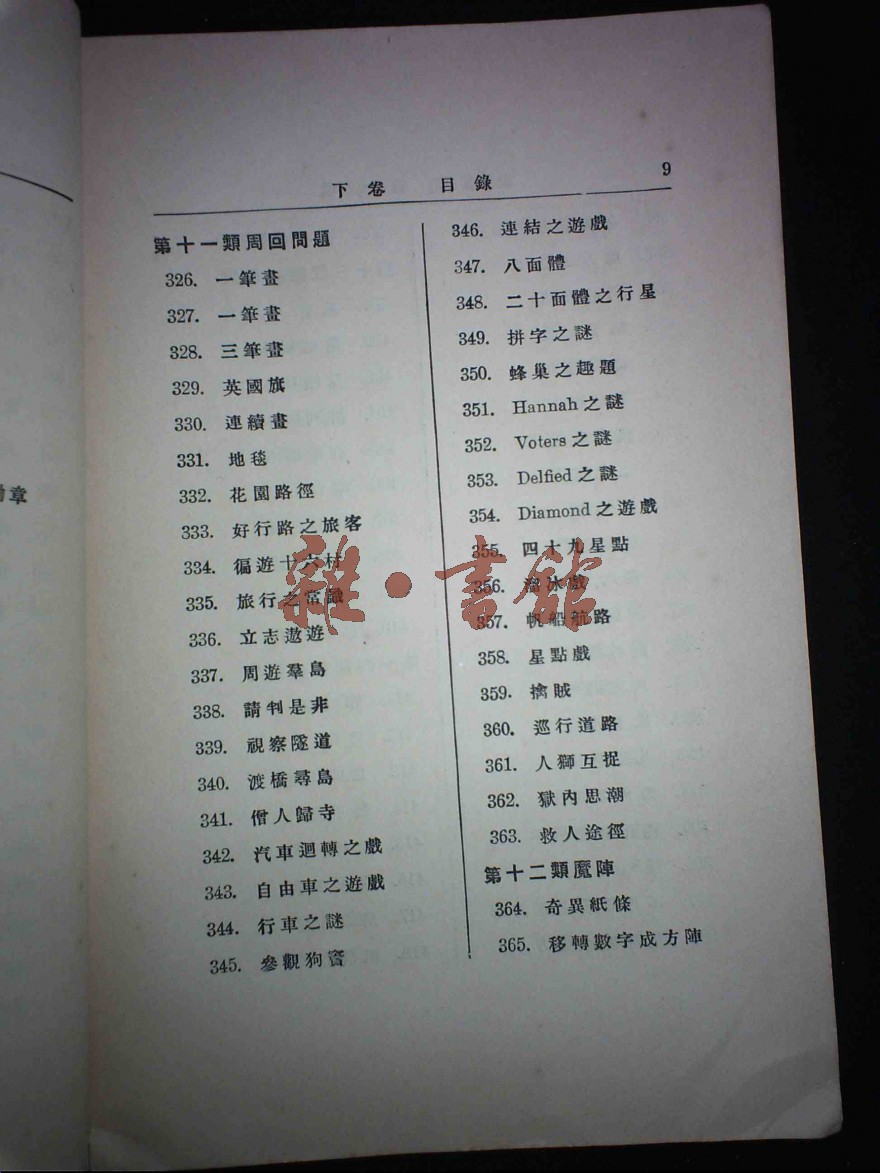 下卷 目錄 9
第十一類周回問題
326. 一筆畫
327. 一筆畫
328. 三筆畫
329. 英國旗
330. 連續畫
331. 地毯
332. 花園路徑
333. 好行路之旅客
334. 徧遊十六村
335. 旅行之常識
336. 立志遨遊
337. 周遊羣島
338. 請判是非
339. 視察隧道
340. 渡橋尋島
341. 僧人歸寺
342. 汽車迴轉之戲
343. 自由車之遊戲
344. 行車之謎
345. 參觀狗竇
346. 連結之遊戲
347. 八面體
348. 二十面體之行星
349. 拼字之謎
350. 蜂巢之趣題
351. Hannah之謎
352. Voters之謎
353. Delfied之謎
354. Diamond之遊戲
355. 四十九星點
356. 溜冰戲
357. 帆船航路
358. 星點戲
359. 擒賊
360. 巡行道路
361. 人獅互捉
362. 獄內思潮
363. 救人途徑
第十二類魔陣
364. 奇異紙條
365. 移轉數字成方陣
章
雜·書館